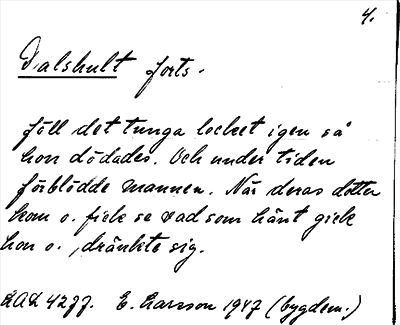 4.
Dalshult forts.
föll det tunga locket igen så
hon dödades. Och under tiden
förblödde mannen. När deras dotter
kom o. fick se vad som hänt gick
hon o. dränkte sig.
E. Larsson 1947 (bygdem.)